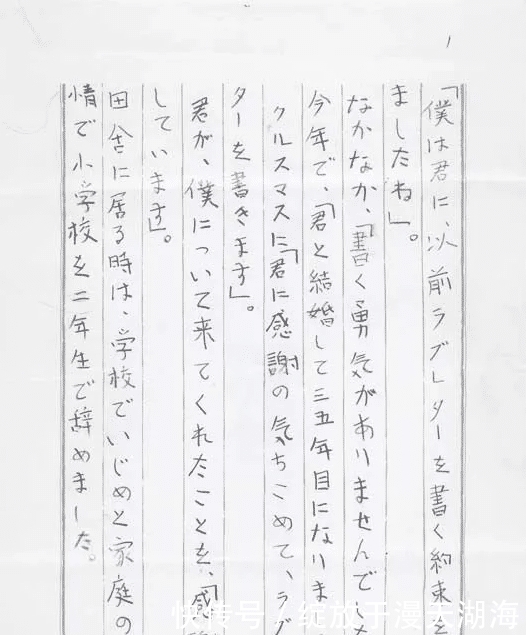 1
「僕は君に、以前ラブレターを書く約束を
ましたね」。
なかなか、「書く勇気がありませんでした
今年で、「君と結婚して三五年目になりま
クルスマスに「君に感謝の気ちこめて、ラブ
ターを書きます」。
君が、僕について来てくれたことを、「感謝
しています」。
田舎に居る時は、学校でいじめと家庭の
情で小学校を二年生で辞めました。
快传号/绽放于漫天湖海